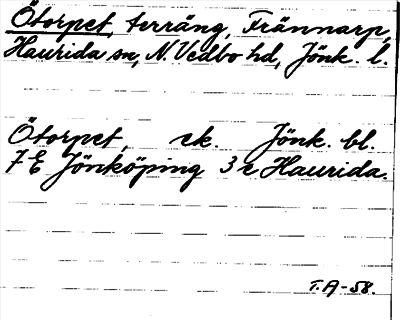 Ötorpet, terräng, Frännarp,
Haurida sn, N. Vedbo hd, Jönk. l.
Ötorpet, ek. Jönk. bl.
7 E Jönköping 3 e Haurida.
T.A-58.